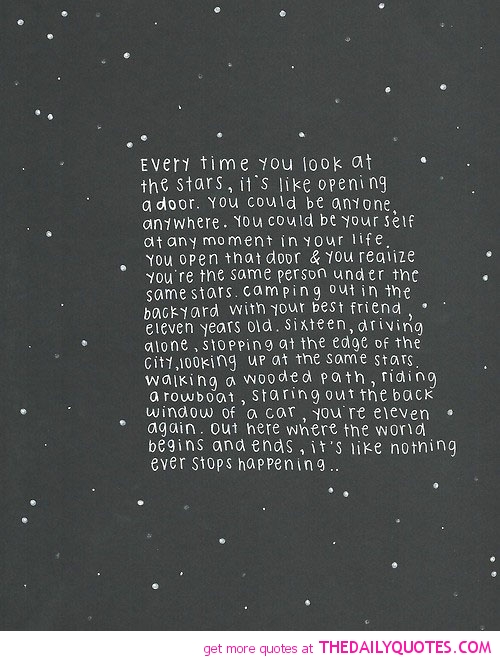 Every time you look at
the stars, it's like opening
a door. You could be anyone,
anywhere. You could be your self
at any moment in your life.
You open that door & you realize
you're the same person under the
same stars. Camping out in the
backyard with your best friend,
eleven years old. Sixteen, driving
alone, stopping at the edge of the
city, looking up at the same stars.
Walking a wooded path, riding
a rowboat, staring out the back
window of a car, you're eleven
again. Out here where the world
begins and ends, it's like nothing
ever stops happening..
get more quotes at THEDAILYQUOTES.COM